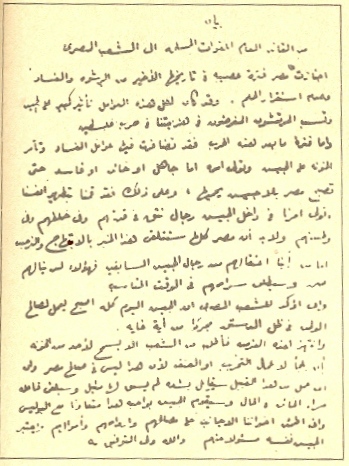 بيان
من القائد العام للقوات المسلحة الى الشعب المصرى
اجتازت مصر فترة عصيبة فى تاريخها الأخير من الرشوه والفساد
وعدم استقرار الحكم . وقد كان لكل هذه العوامل تأثير كبير على الجيش
وتسبب المرتشون المغرضون فى هزيمتنا فى حرب فلسطين
واما فترة ما بعد هذه الحرب فقد تضافرت فيها عوامل الفساد وتآمر
الخونة على الجيش وتولى امره اما جاهل او خائن او فاسد حتى
تصبح مصر بلا جيش يحميها ، وعلى ذلك فقد قمنا بتطهير انفسنا
وتولى امرنا فى داخل الجيش رجال نثق فى قدرتهم وفى خلقهم وفى
وطنيتهم ولابد أن مصر كلها ستتلقى هذا الخبر بالابتهاج والترحيب
اما من رأينا اعتقالهم من رجال الجيش السابقين فهؤلاء لن ينالهم
ضرر وسيطلق سراحهم فى الوقت المناسب
وانى اؤكد للشعب المصرى ان الجيش اليوم كله اصبح يعمل لصالح
الوطن فى ظل الدستور مجردا من أية غاية
وانتهز هذه الفرصة فأطلب من الشعب الا يسمح لأحد من الخونه
أن يلجأ لأعمال التخريب او العنف لأن هذا ليس فى صالح مصر وان
اى عمل من هذا القبيل سيقابل بشده لم يسبق لها مثيل وسيلقى فاعله
جزاء الخائن فى الحال وسيقوم الجيش بواجبه هذا متعاونا مع البوليس
وانى اطمئن اخواننا الاجانب على مصالحهم وارواحهم وأموالهم ويعتبر
الجيش نفسه مسئولا عنهم والله ولى التوفيق